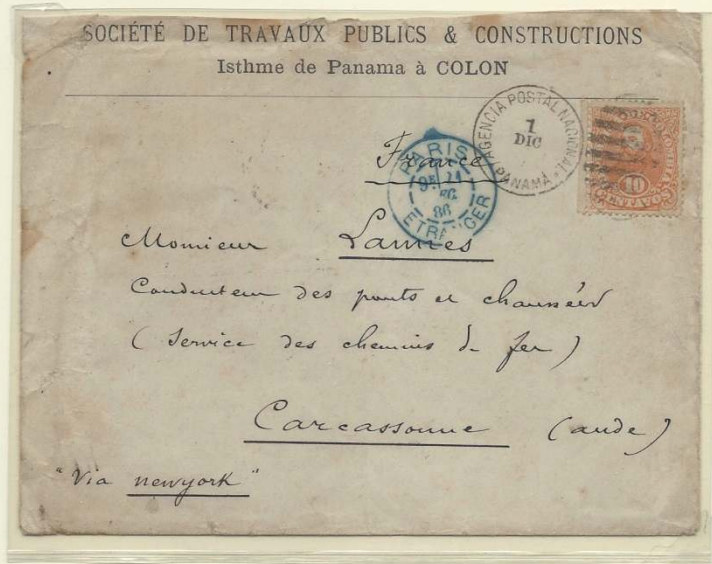 SOCIÉTÉ DE TRAVAUX PUBLICS & CONSTRUCTIONS
Isthme de Panama à COLON
AGENCIA POSTAL NACIONAL
1
DIC
PANAMÁ
10
France
PARIS
21
86
ETRANGER
Monsieur Lamres
Conducteur des ponts et chaussées
(Service des chemins de fer)
Carcassonne (aude)
"Via newyork"